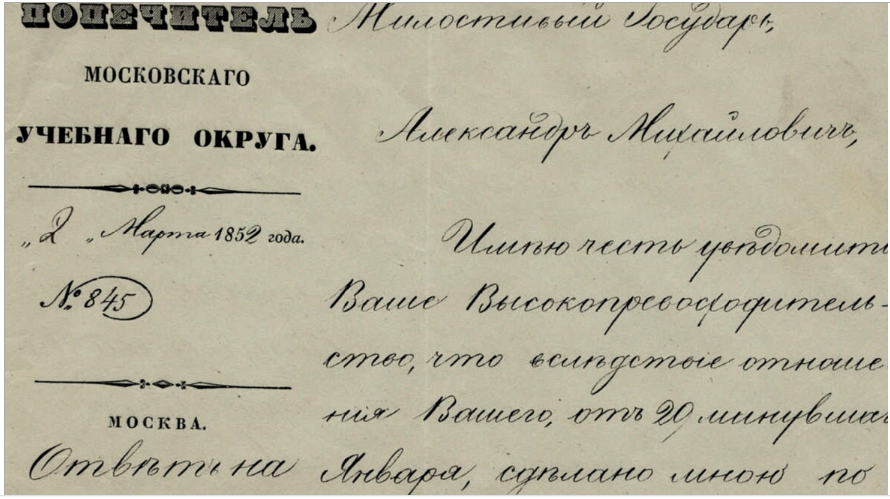 ПОПЕЧИТЕЛЬ
МОСКОВСКАГО
УЧЕБНАГО ОКРУГА.
„2„ Марта 1852 года.
№ 845
МОСКВА.
Отвѣтъ на
Милостивый Государь,
Александръ Михайловичъ,
Имѣю честь увѣдомить
Ваше Высокопревосходитель-
ство, что вслѣдствіе отноше
нія Вашего, отъ 29 минувша
Января, сдѣлано мною по